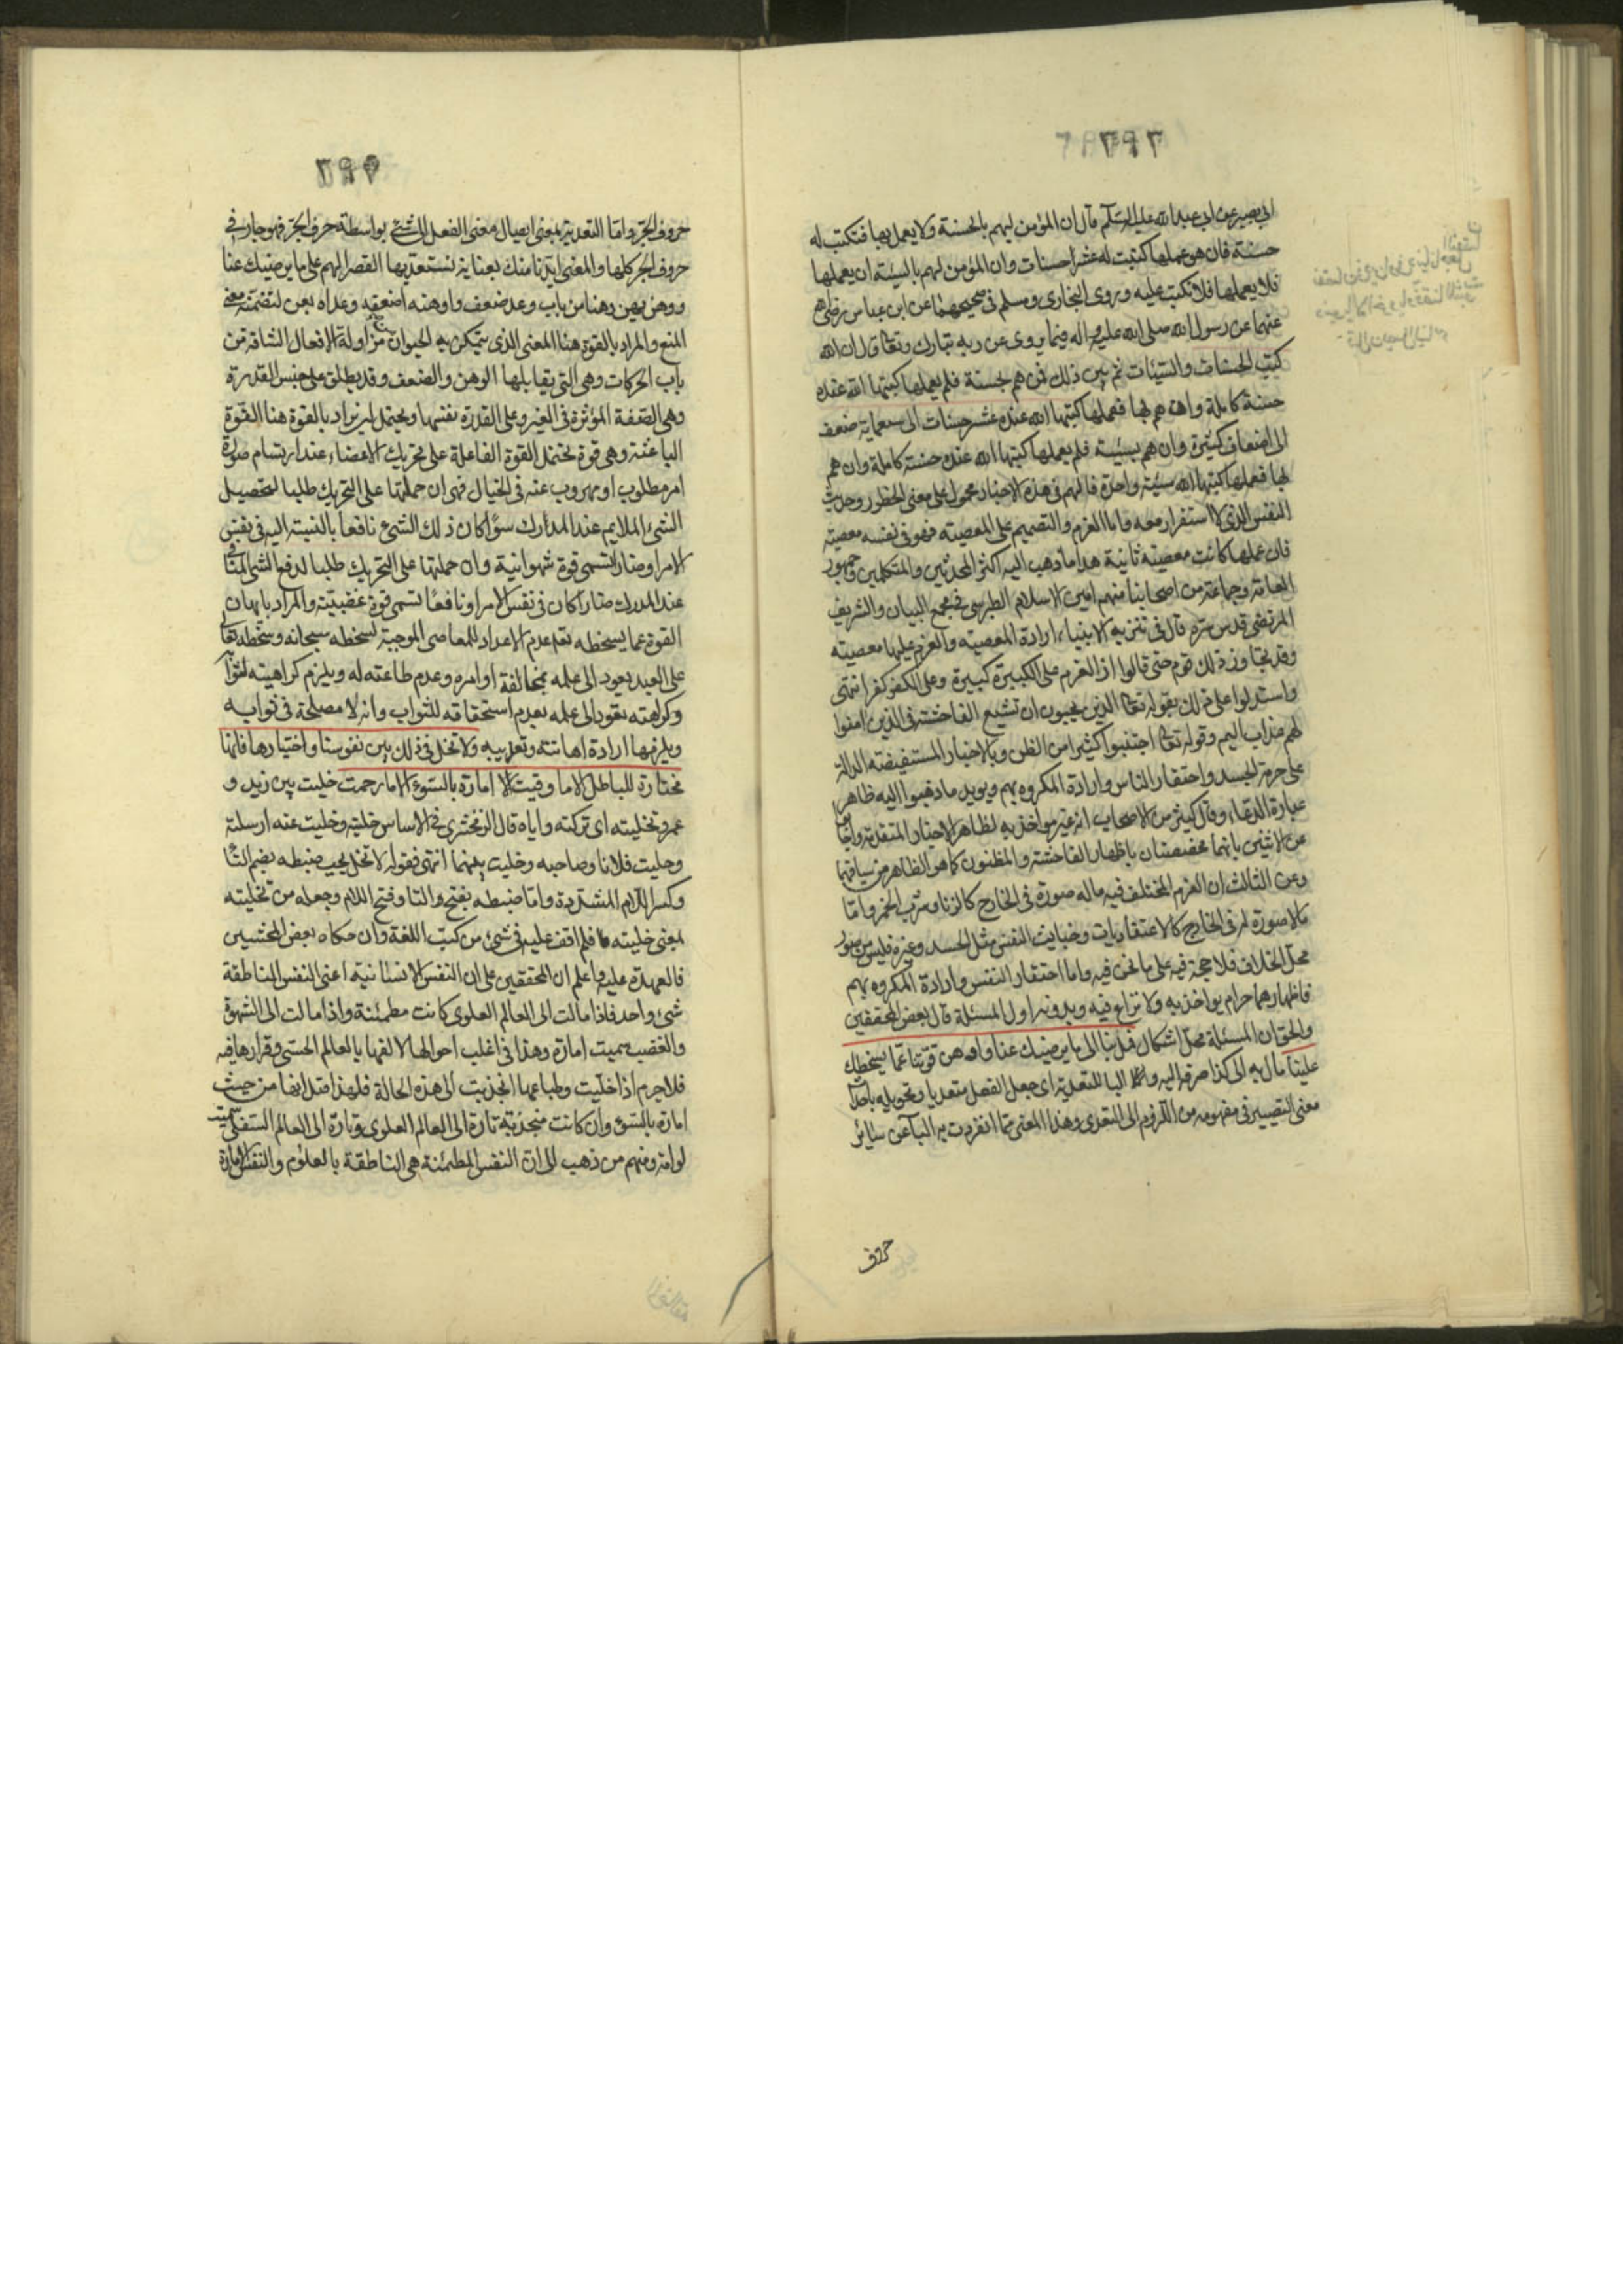 ٢٩٦
ابي بصير عن ابي عبد الله عليه السلام قال ان المؤمن ليهم بالحسنة ولا يعمل بها فتكتب له
حسنة فان هو عملها كتبت له عشر حسنات وان المؤمن ليهم بالسيئة ان يعملها
فلا يعملها فلا تكتب عليه وروى البخاري ومسلم في صحيحهما عن ابن عباس رضي الله
عنهما عن رسول الله صلى الله عليه واله فيما يروى عن ربه تبارك وتعالى قال ان الله
كتب الحسنات والسيئات ثم بين ذلك فمن هم بحسنة فلم يعملها كتبها الله عنده
حسنة كاملة وان هم بها فعملها كتبها الله عنده عشر حسنات الى سبعماية ضعف
الى اضعاف كثيرة وان هم بسيئة فلم يعملها كتبها الله عنده حسنة كاملة وان هم
بها فعملها كتبها الله سيئة واحدة فالهم في هذه الاخبار محمول على معنى الخطور وحديث
النفس الذي لا استقرار معه واما العزم والتصميم على المعصية فهو في نفسه معصية
فان عملها كانت معصية ثانية هذا ما ذهب اليه اكثر المحدثين والمتكلمين وجمهور
العامة وجماعة من اصحابنا منهم امين الاسلام الطبرسي في مجمع البيان والشريف
المرتضى قدس سره قال في تنزيه الانبياء ارادة المعصية والعزم عليها معصية
وقد تجاوز ذلك قوم حتى قالوا ان العزم على الكبيرة كبيرة وعلى الكفر كفر انتهى
واستدلوا على ذلك بقوله تعالى الذين يحبون ان تشيع الفاحشة في الذين امنوا
لهم عذاب اليم وقوله تعالى اجتنبوا كثيرا من الظن وبالاخبار المستفيضة الدالة
على حرمة الحسد واحتقار الناس وارادة المكروه بهم ويؤيد ما ذهبوا اليه ظاهر
عبارة الدعاء وقال كثير من الاصحاب انه غير مواخذ به لظاهر الاخبار المتقدمة واجابوا
عن الاثنين بانهما مخصصتان باظهار الفاحشة والمظنون كما هو الظاهر من سياقهما
وعن الثالث ان العزم المختلف فيه ماله صورة في الخارج كالزنا وشرب الخمر واما
مالا صورة له في الخارج كالاعتقاديات وخبايث النفس مثل الحسد وغيره فليس من صور
محل الخلاف فلا حجة فيه على ما نحن فيه واما احتقار النفس وارادة المكروه بهم
فاظهارهما حرام يواخذ به ولا نزاع فيه وبدونه اول المسئلة قال بعض المحققين
والحق ان المسئلة محل اشكال فمل بنا الى ما يرضيك عنا واوهن قوتنا عما يسخطك
علينا مال به الى كذا صرفه اليه والباء للتعدية اي جعل الفعل متعديا وتحويله باحداث
معنى التصيير في مفهومه من اللزوم الى التعدى وهذا المعنى مما انفردت به الباء عن سائر
حروف
٢٩٧
حروف الجر واما التعدية بمعنى ايصال معنى الفعل الى شيء بواسطة حرف الجر فهو جار في
حروف الجر كلها والمعنى ايدنا منك بعناية نستعد بها لقصر الهم على ما يرضيك عنا
ووهن يهن وهنا من باب وعد ضعف واوهنه اضعفه وعداه بعن لتضمنه معنى
المنع والمراد بالقوة هنا المعنى الذي يتمكن به الحيوان من مزاولة الافعال الشاقة من
باب الحركات وهي التي يقابلها الوهن والضعف وقد يطلق على جنس القدرة
وهي الصفة المؤثرة في الغير وعلى القدرة نفسها ويحتمل ان يراد بالقوة هنا القوة
الباعثة وهي قوة تحتمل القوة الفاعلة على تحريك الاعضاء عند ارتسام صورة
امر مطلوب او مهروب عنه في الخيال فهى ان حملتها على التحريك طلبا لتحصيل
الشيء الملايم عند المدارك سواء كان ذلك الشيء نافعا بالنسبة اليه في نفس
الامر او ضارا تسمى قوة شهوانية وان حملتها على التحريك طلبا لدفع الشيء المنافر
عند المدرك ضارا كان في نفس الامر او نافعا تسمى قوة غضبية والمراد بايهان
القوة عما يسخطه تعالى عدم الاعداد للمعاصي الموجبة لسخطه سبحانه وسخطه تعالى
على العبد يعود الى علمه بمخالفة اوامره وعدم طاعته له ويلزم كراهيته لثوابه
وكراهته تعود الى علمه بعدم استحقاقه للثواب وانه لا مصلحة في ثوابه
ويلزمها ارادة اهانته وتعذيبه ولا تخل في ذلك بين نفوسنا واختيارها فانها
مختارة للباطل الا ما وقيت الامارة بالسوء الا ما رحمت خليت بين زيد و
عمرو تخليته اي تركته واياه قال الزمخشري في الاساس خليته وخليت عنه ارسلته
وخليت فلانا وصاحبه وخليت بينهما انتهى فقوله لا تخل يجب ضبطه بضم التاء
وكسر اللام المشددة واما ضبطه بفتح التا وفتح اللام وجعله من تخليته
بمعنى خليته فلم اقف عليه في شيء من كتب اللغة وان حكاه بعض المحشيين
فالعهدة عليه واعلم ان المحققين على ان النفس الانسانية اعنى النفس الناطقة
شيء واحد فاذا مالت الى العالم العلوى كانت مطمئنة واذا مالت الى الشهوة
والغضب سميت امارة وهذا في اغلب احوالها لالفها بالعالم الحسي وقرارها فيه
فلا جرم اذا خليت وطباعها انجذبت الى هذه الحالة فلهذا قيل انها من حيث
امارة بالسوء وان كانت منجذبة تارة الى العالم العلوى وتارة الى العالم السفلى سميت
لوامة ومنهم من ذهب الى ان النفس المطمئنة هي الناطقة بالعلوم والنفس الامارة